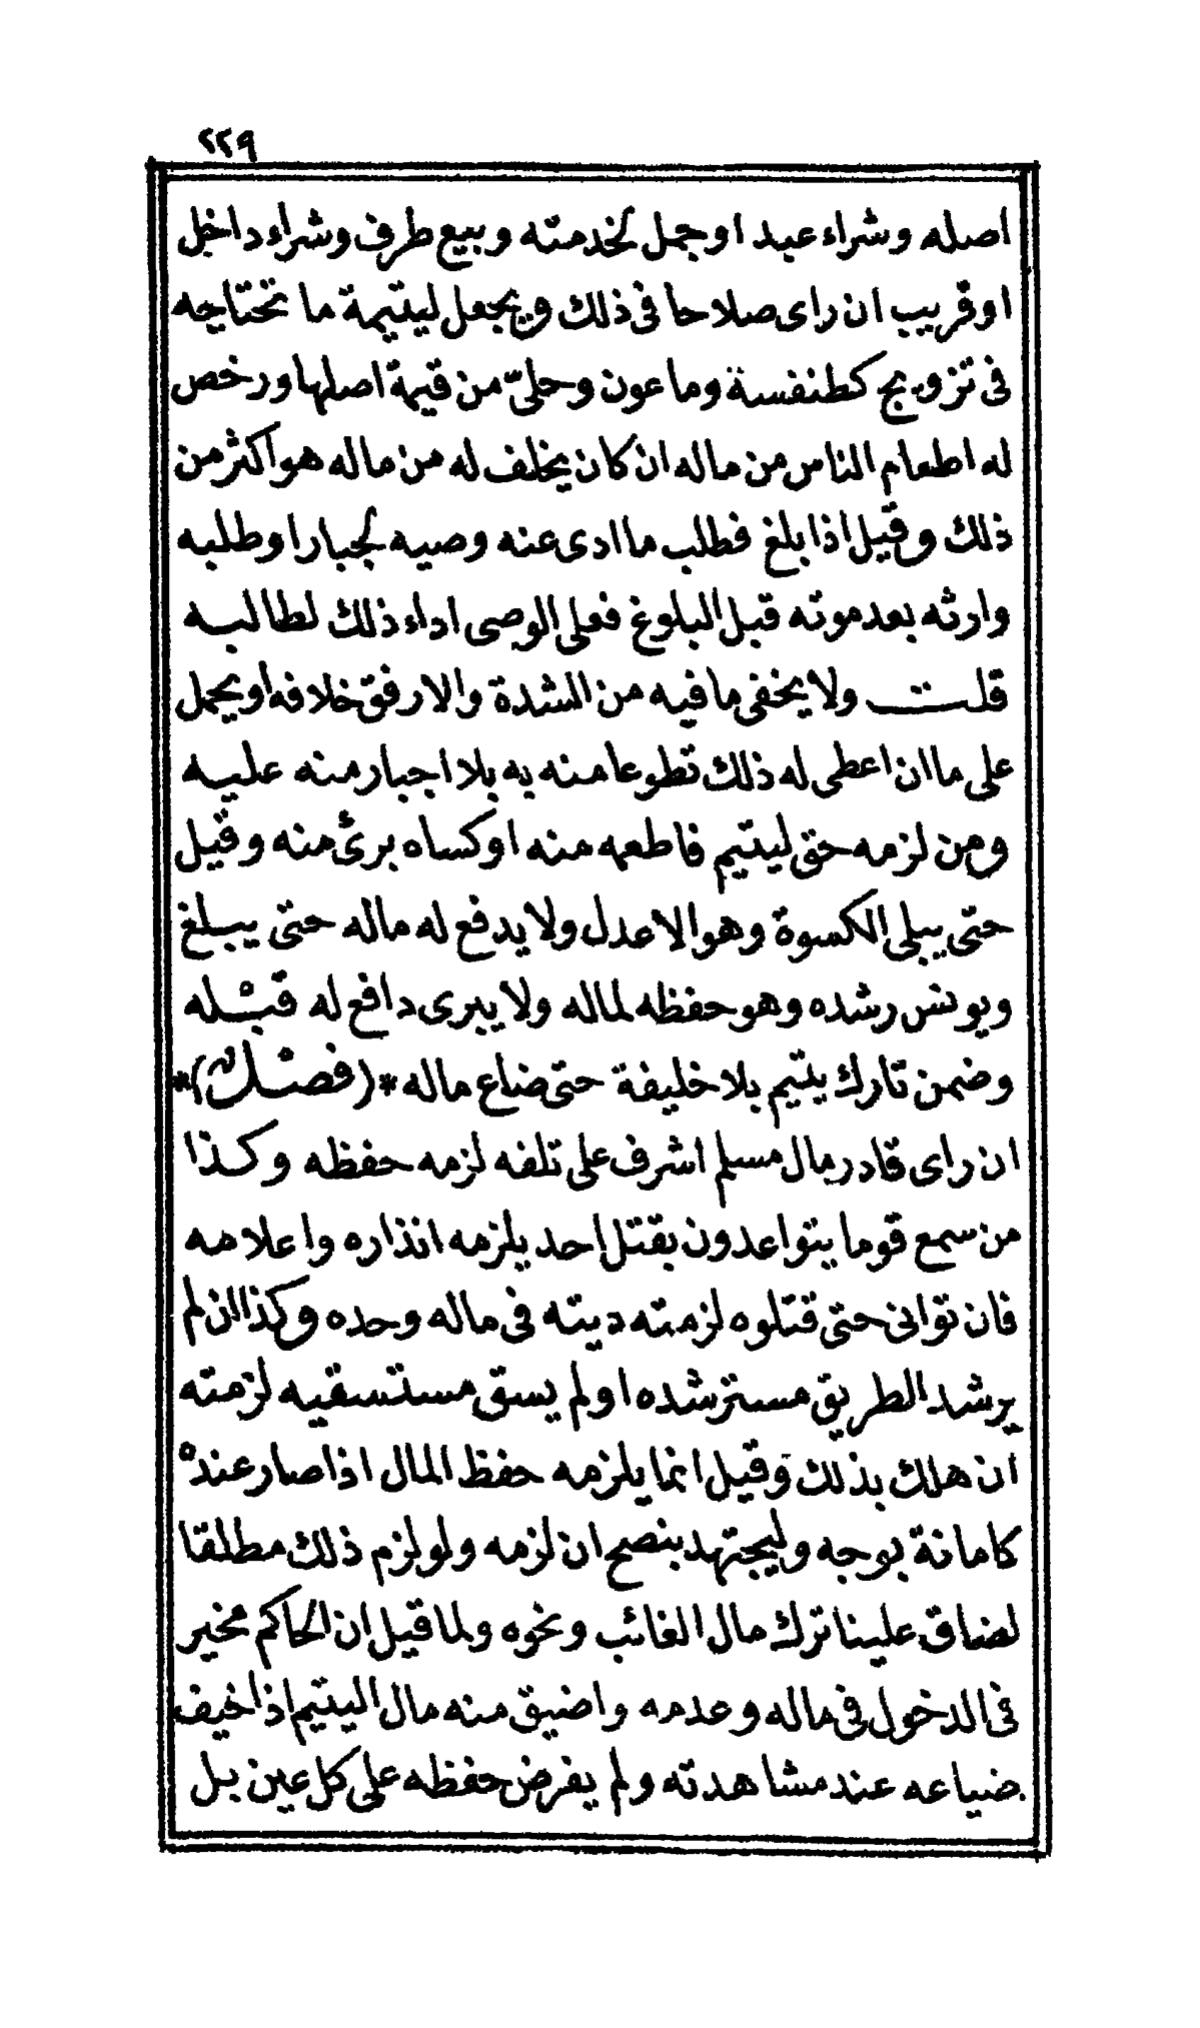 ٢٢٩
اصله وشراء عبد او جمل لخدمته وبيع طرف وشراء داخل
او قريب ان راى صلاحا في ذلك ويجعل ليتيمة ما تحتاجه
في تزويج كطنفسة وماعون وحلىّ من قيمة اصلها ورخص
له اطعام الناس من ماله ان كان يخلف له من ماله هو اكثر من
ذلك وقيل اذا بلغ فطلب ما ادى عنه وصيه لجبار او طلبه
وارثه بعد موته قبل البلوغ فعلى الوصى اداء ذلك لطالبه
قلت ولا يخفى ما فيه من الشدة والارفق خلافه او يحمل
على ما ان اعطى له ذلك تطوعا منه به بلا اجبار منه عليه
ومن لزمه حق ليتيم فاطعمه منه او كساه برئ منه وقيل
حتى يبلى الكسوة وهو الاعدل ولا يدفع له ماله حتى يبلغ
ويونس رشده وهو حفظه لماله ولا يبرى دافع له قبْله
وضمن تارك يتيم بلا خليفة حتى ضاع ماله *(فصْل)*
ان راى قادر مال مسلم اشرف على تلفه لزمه حفظه وكذا
من سمع قوما يتواعدون بقتل احد يلزمه انذاره واعلامه
فان توانى حتى قتلوه لزمته ديته في ماله وحده وكذا ان لم
يرشد الطريق مسترشده او لم يسق مستسقيه لزمته
ان هلك بذلك وقيل انما يلزمه حفظ المال اذا صار عنده
كامانة بوجه وليجتهد بنصح ان لزمه ولو لزم ذلك مطلقا
لضاق علينا ترك مال الغائب ونحوه ولما قيل ان الحاكم مخير
في الدخول في ماله وعدمه واضيق منه مال اليتيم اذا خيف
ضياعه عند مشاهدته ولم يفرض حفظه على كل عين بل